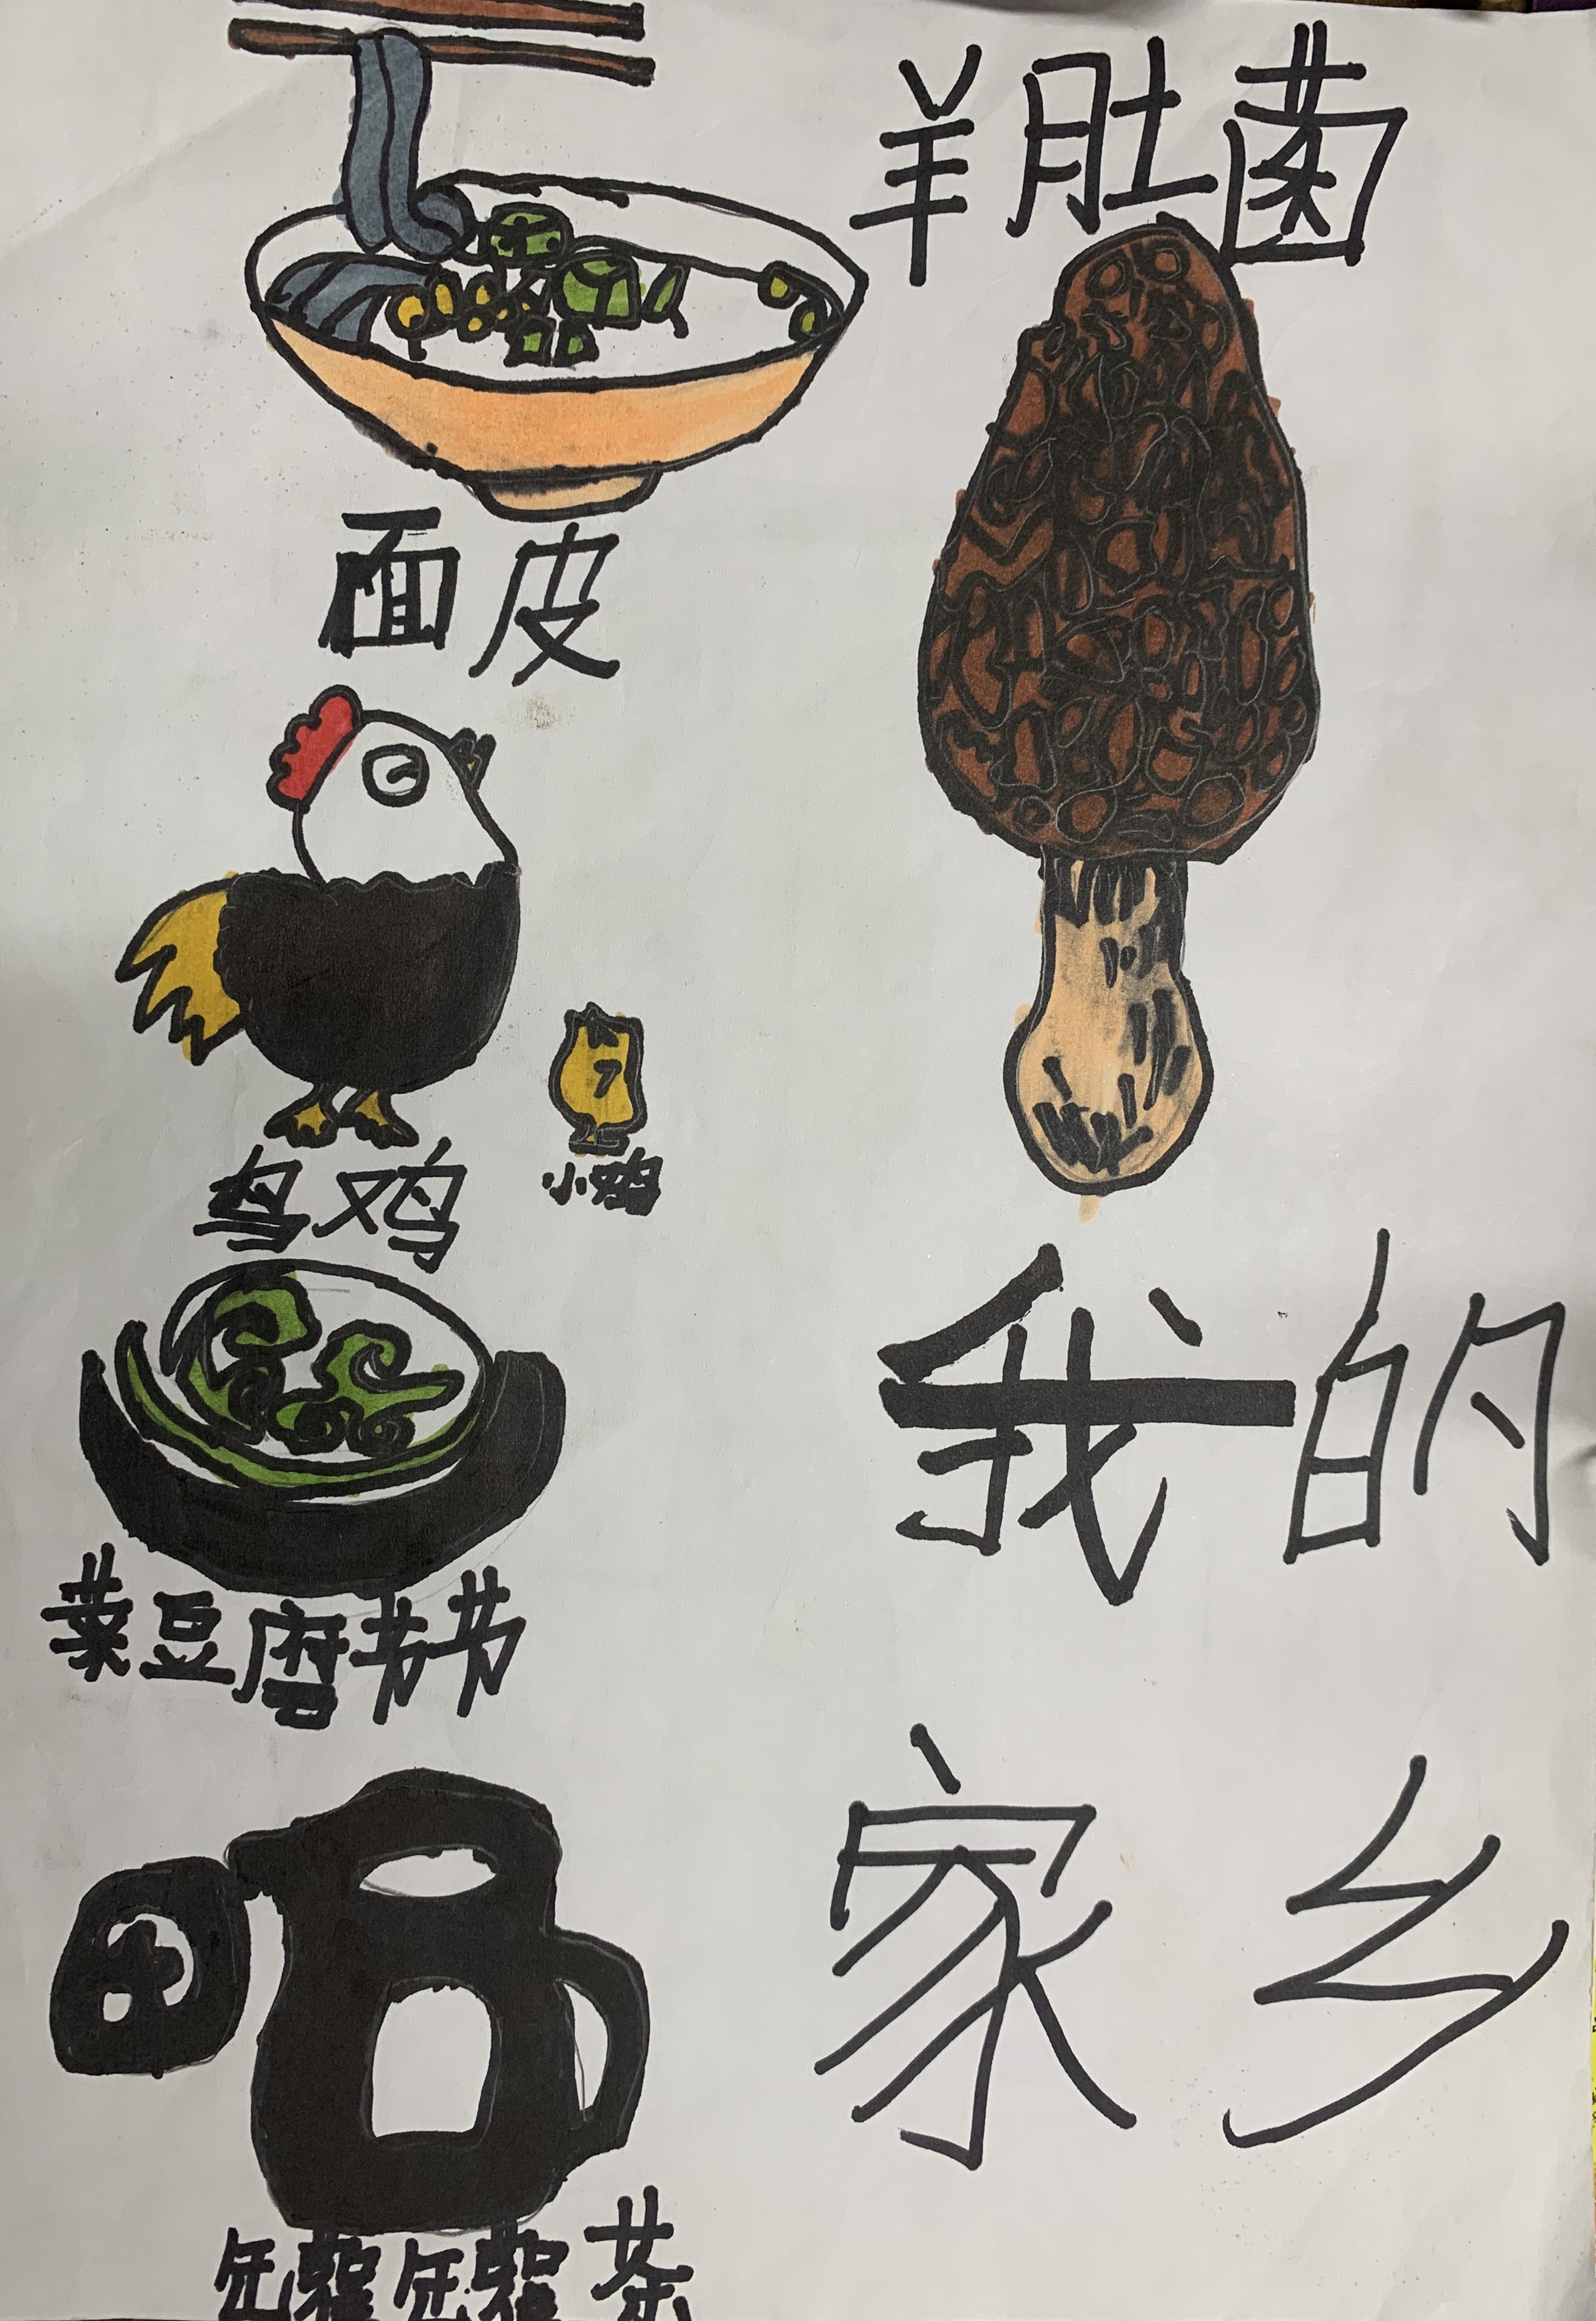 羊肚菌
面皮
乌鸡
小鸡
菜豆腐节节
罐罐茶
我的
家乡